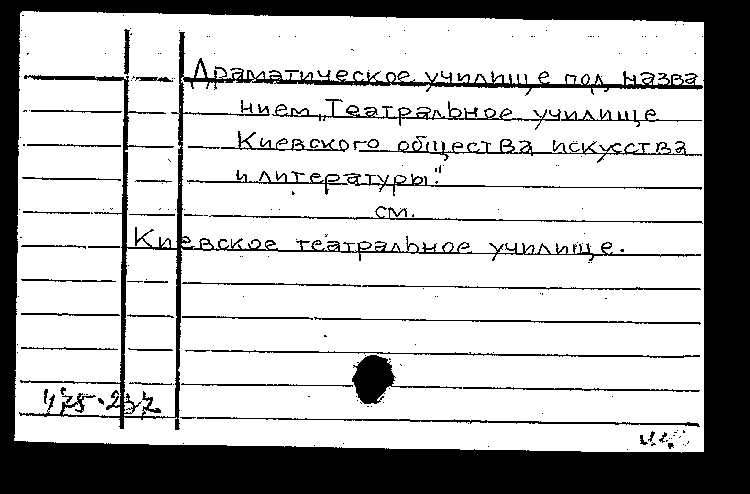 Драматическое училище под назва
нием „Театральное училище
Киевского общества искусства
и литературы".
см.
Киевское театральное училище.